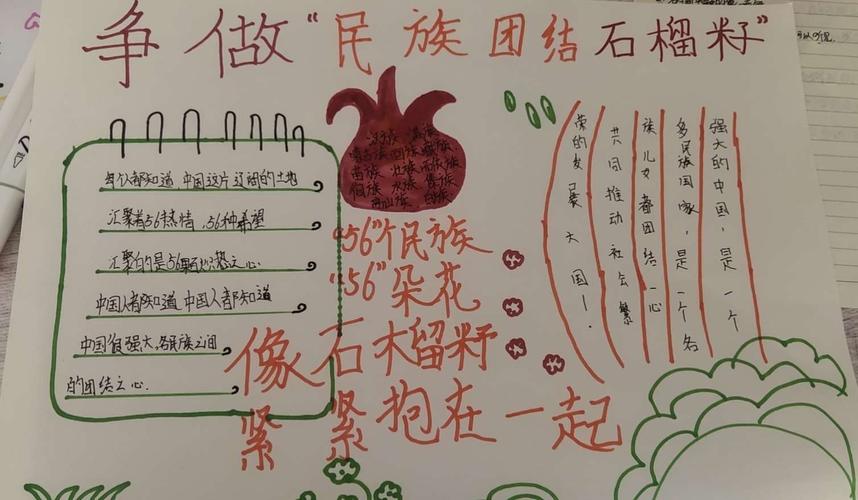 争做"民族团结石榴籽"
每个都知道,中国这片辽阔的土地
汇聚着56热情,56种希望
汇聚的是56颗炽热之心
中国人都知道,中国人都知道
中国很强大,各民族之间
的团结之心.
汉族 满族
蒙古族 回族 藏族
苗族 壮族
侗族 水族
高山族 白族
"56"个民族
"56"朵花
像石榴籽
紧紧抱在一起
强大的中国,是一个
多民族国家,是一个各
族儿女都团结一心
共同推动社会繁
荣的发展大国!